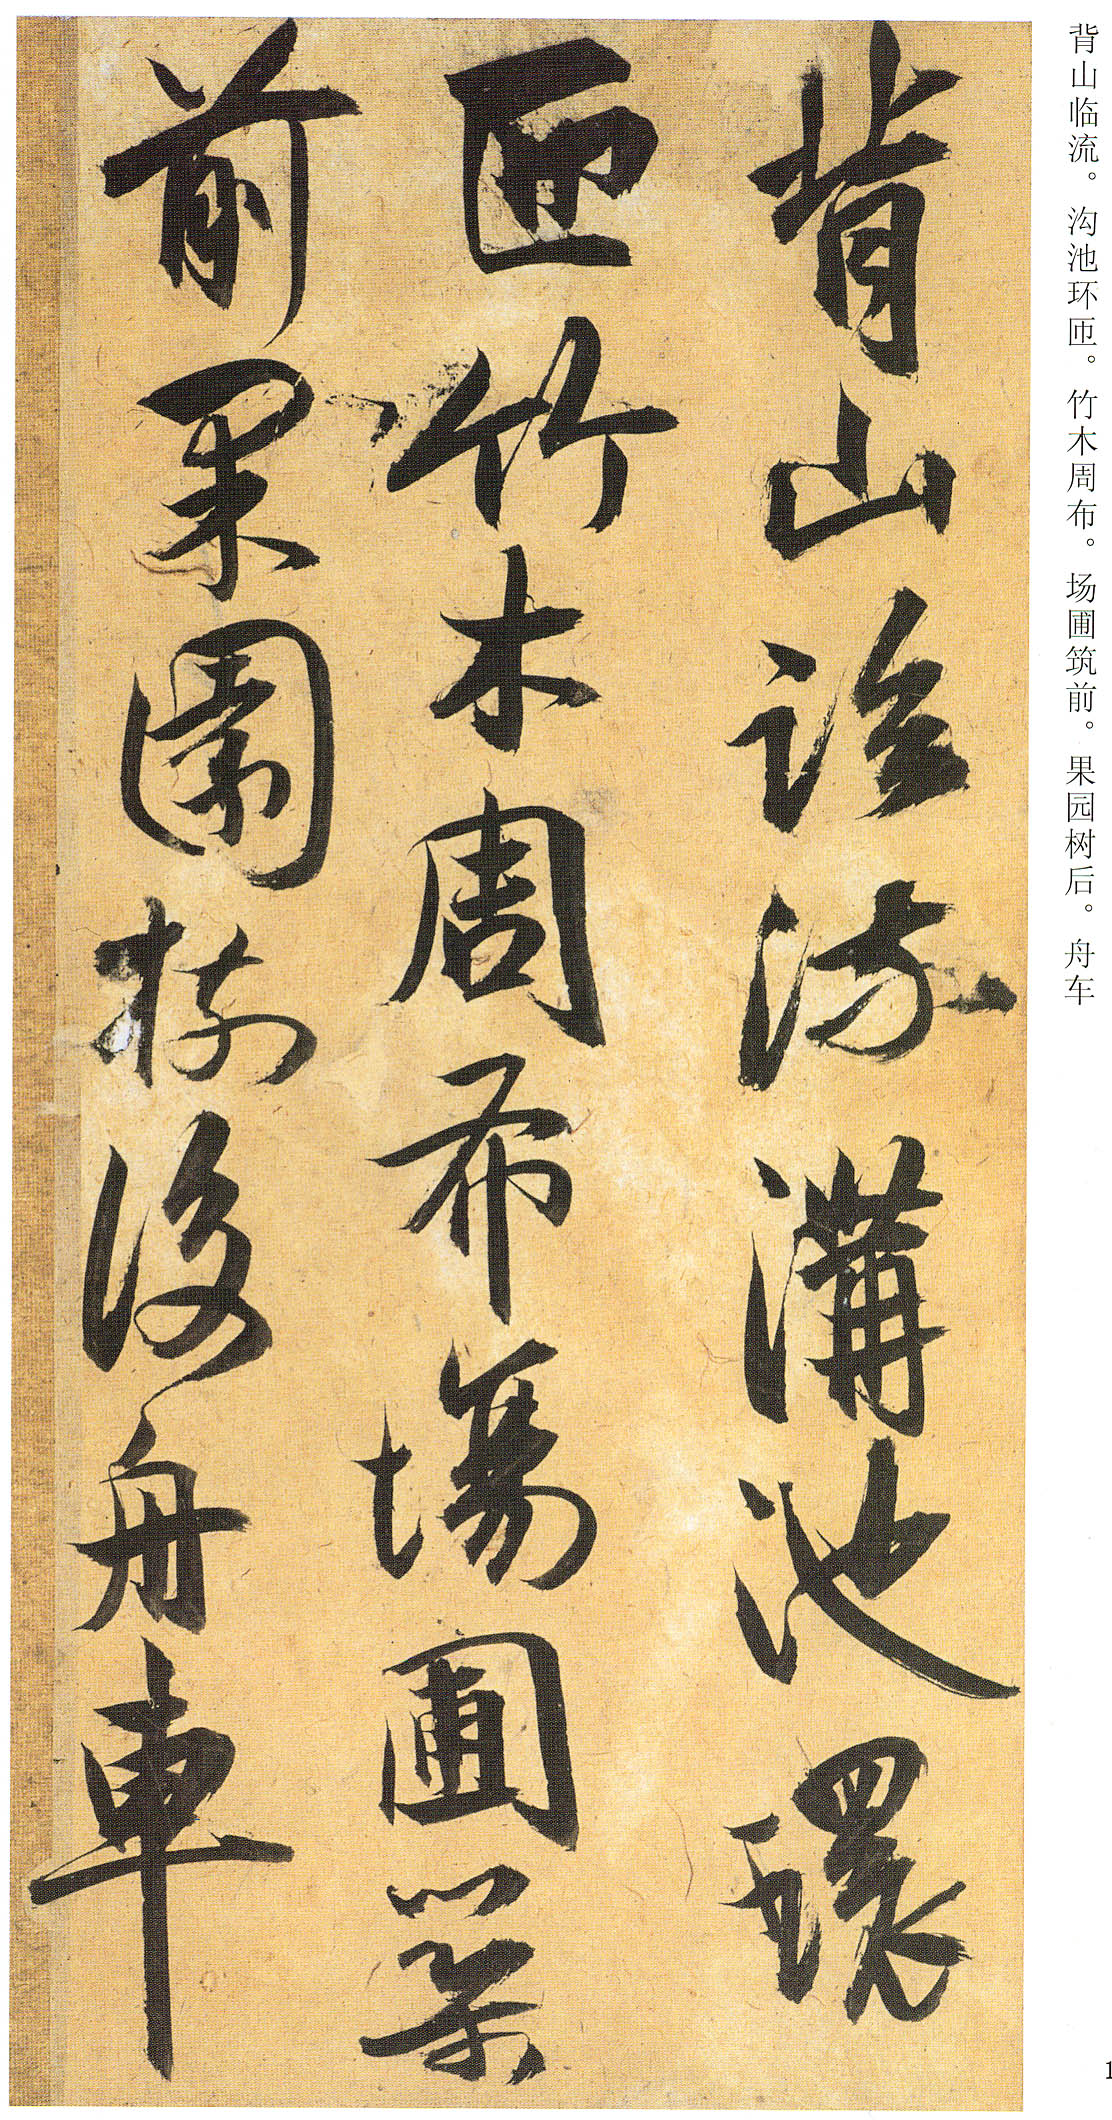 背山临流。沟池环匝。竹木周布。场圃筑前。果园树后。舟车
背山臨流溝池環
匝竹木周布場圃築
前果園樹後舟車
1